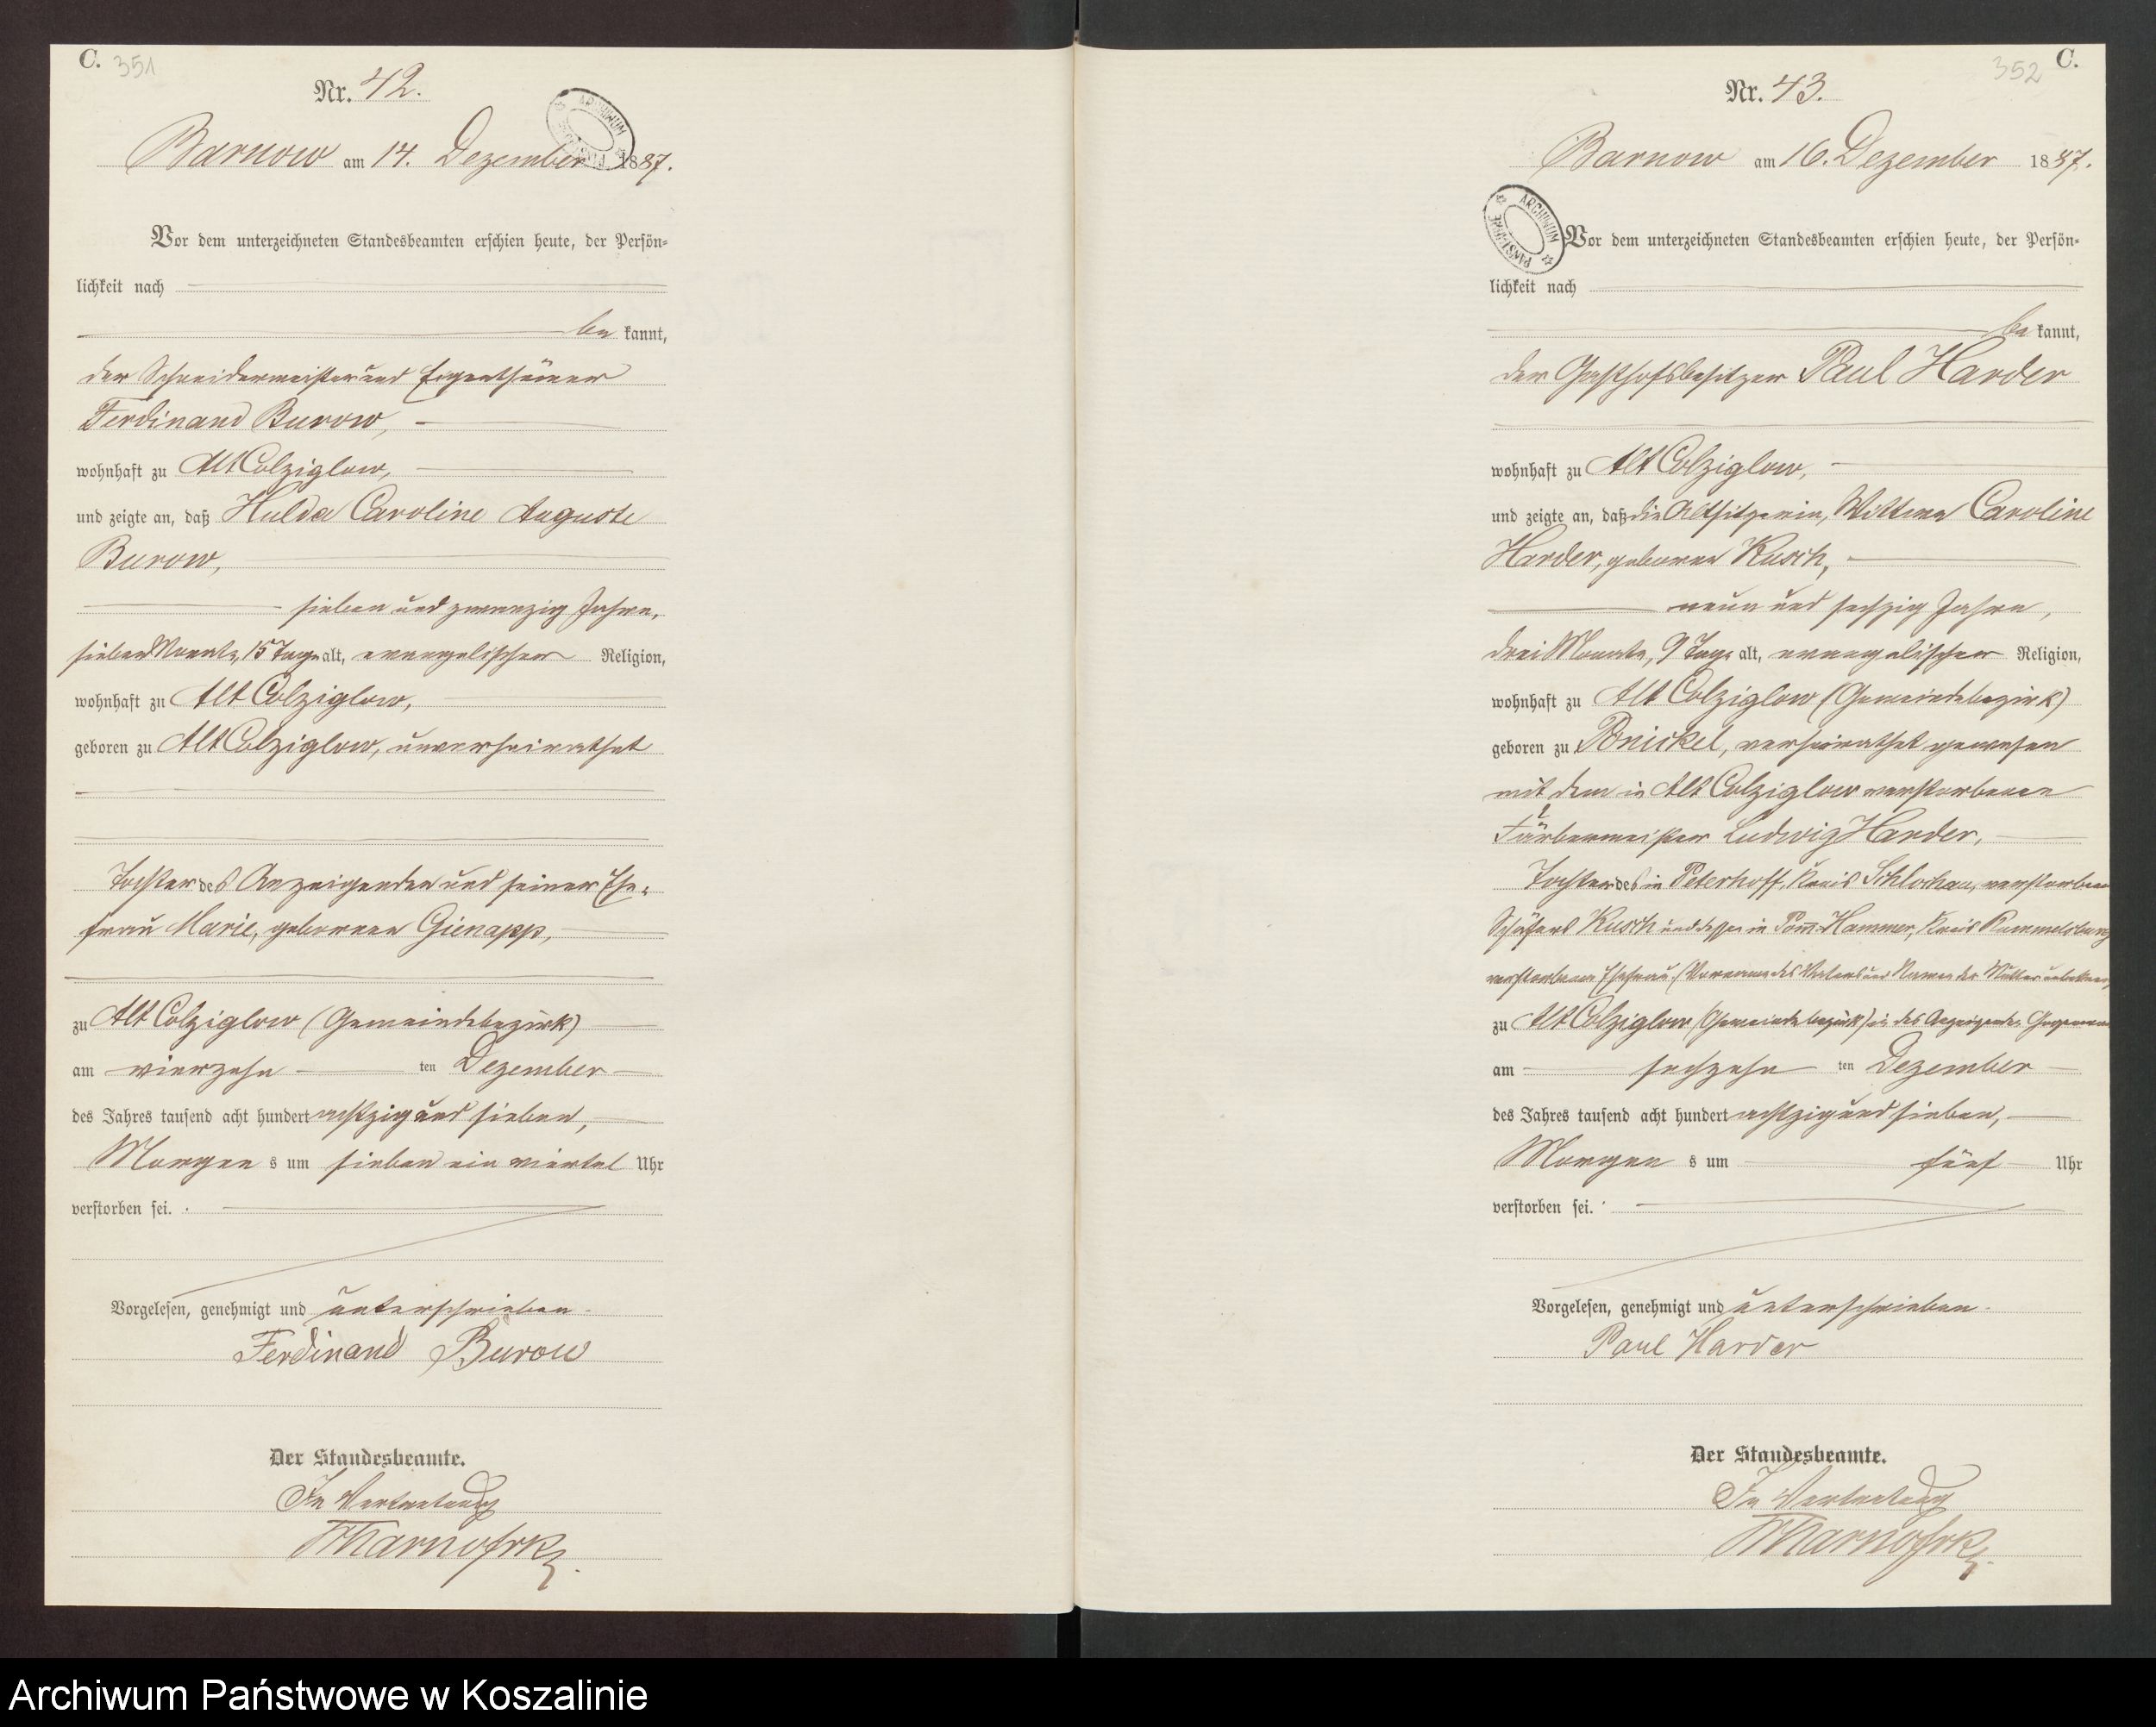 C. 351
Nr. 42.
ARCHIWUM PAŃSTWOWE
Barnow am 14. Dezember 1887.
Vor dem unterzeichneten Standesbeamten erschien heute, der Persön-
lichkeit nach
be kannt,
der Schneidermeister und Eigenthümer
Ferdinand Burow,
wohnhaft zu Alt Colziglow,
und zeigte an, daß Hulda Caroline Auguste
Burow,
sieben und zwanzig Jahre,
sieben Monate, 15 Tage alt, evangelischer Religion,
wohnhaft zu Alt Colziglow,
geboren zu Alt Colziglow, unverheirathet
Tochter des Anzeigenden und seiner Ehe-
frau Marie, geborenen Gienapp,
zu Alt Colziglow (Gemeindebezirk)
am vierzehn ten Dezember
des Jahres tausend acht hundert achtzig und sieben,
Morgen s um sieben ein viertel Uhr
verstorben sei.
Vorgelesen, genehmigt und unterschrieben.
Ferdinand Burow
Der Standesbeamte.
In Vertretung
352 C.
Nr. 43.
Barnow am 16. Dezember 1887.
ARCHIWUM PAŃSTWOWE
Vor dem unterzeichneten Standesbeamten erschien heute, der Persön-
lichkeit nach
be kannt,
der Gasthofsbesitzer Paul Harder
wohnhaft zu Alt Colziglow,
und zeigte an, daß die Altsitzerin, Wittwe Caroline
Harder, geborene Kusch,
neun und sechzig Jahre,
drei Monate, 9 Tage alt, evangelischer Religion,
wohnhaft zu Alt Colziglow (Gemeindebezirk)
geboren zu Ponickel, verheirathet gewesen
mit dem in Alt Colziglow verstorbenen
Färbermeister Ludwig Harder,
Tochter des in Peterhoff, Kreis Schlochau, verstorbenen
Schäfers Kusch und dessen in Pom̄. Hammer, Kreis Rummelsburg
verstorbenen Ehefrau. (Vorname des Vaters und Namen der Mutter unbekannt)
zu Alt Colziglow (Gemeindebezirk) in des Anzeigenden Gegenwart
am sechzehn ten Dezember
des Jahres tausend acht hundert achtzig und sieben,
Morgen s um fünf Uhr
verstorben sei.
Vorgelesen, genehmigt und unterschrieben.
Paul Harder
Der Standesbeamte.
In Vertretung
Archiwum Państwowe w Koszalinie